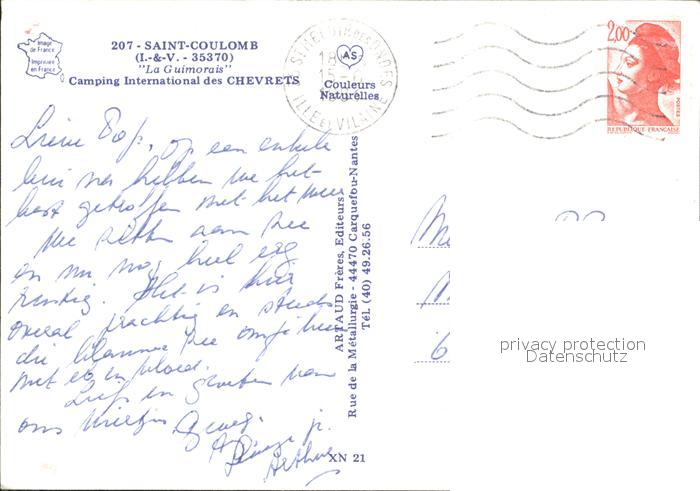 Image
de France
Imprimée
en France
207 - SAINT-COULOMB
(I.-&-V. - 35370)
"La Guimorais"
Camping International des CHEVRETS
AS
Couleurs
Naturelles
18
15-
ILLE et VILAINE
2,00
POSTES
REPUBLIQUE FRANÇAISE
Lieve
op een enkele
hebben we het
best getroffen met het weer
We zitten aan zee
en nu nog heel erg
rustig. Het is hier
overal prachtig en steeds
die blauwe zee om je heen
met eb en vloed.
Liefs en groeten van
ons
jr.
Arthur
ARTAUD Frères, Editeurs
Rue de la Métallurgie - 44470 Carquefou-Nantes
Tél. (40) 49.26.56
XN 21
6
privacy protection
Datenschutz